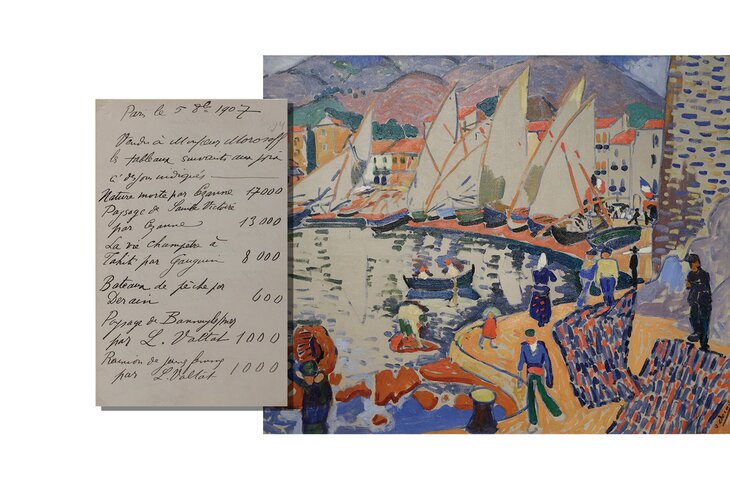 Paris le 5 8bre 1907
Vendu à Monsieur Morosoff
les tableaux suivants aux prix
ci dessous indiqués
Nature morte par Cezanne 17000
Paysage de Sainte Victoire
par Cezanne 13000
La vie champêtre à
Tahiti par Gauguin 8000
Bateaux de pêche par
Derain 600
Paysage de
par L. Valtat 1000
Reunion de
par L. Valtat 1000